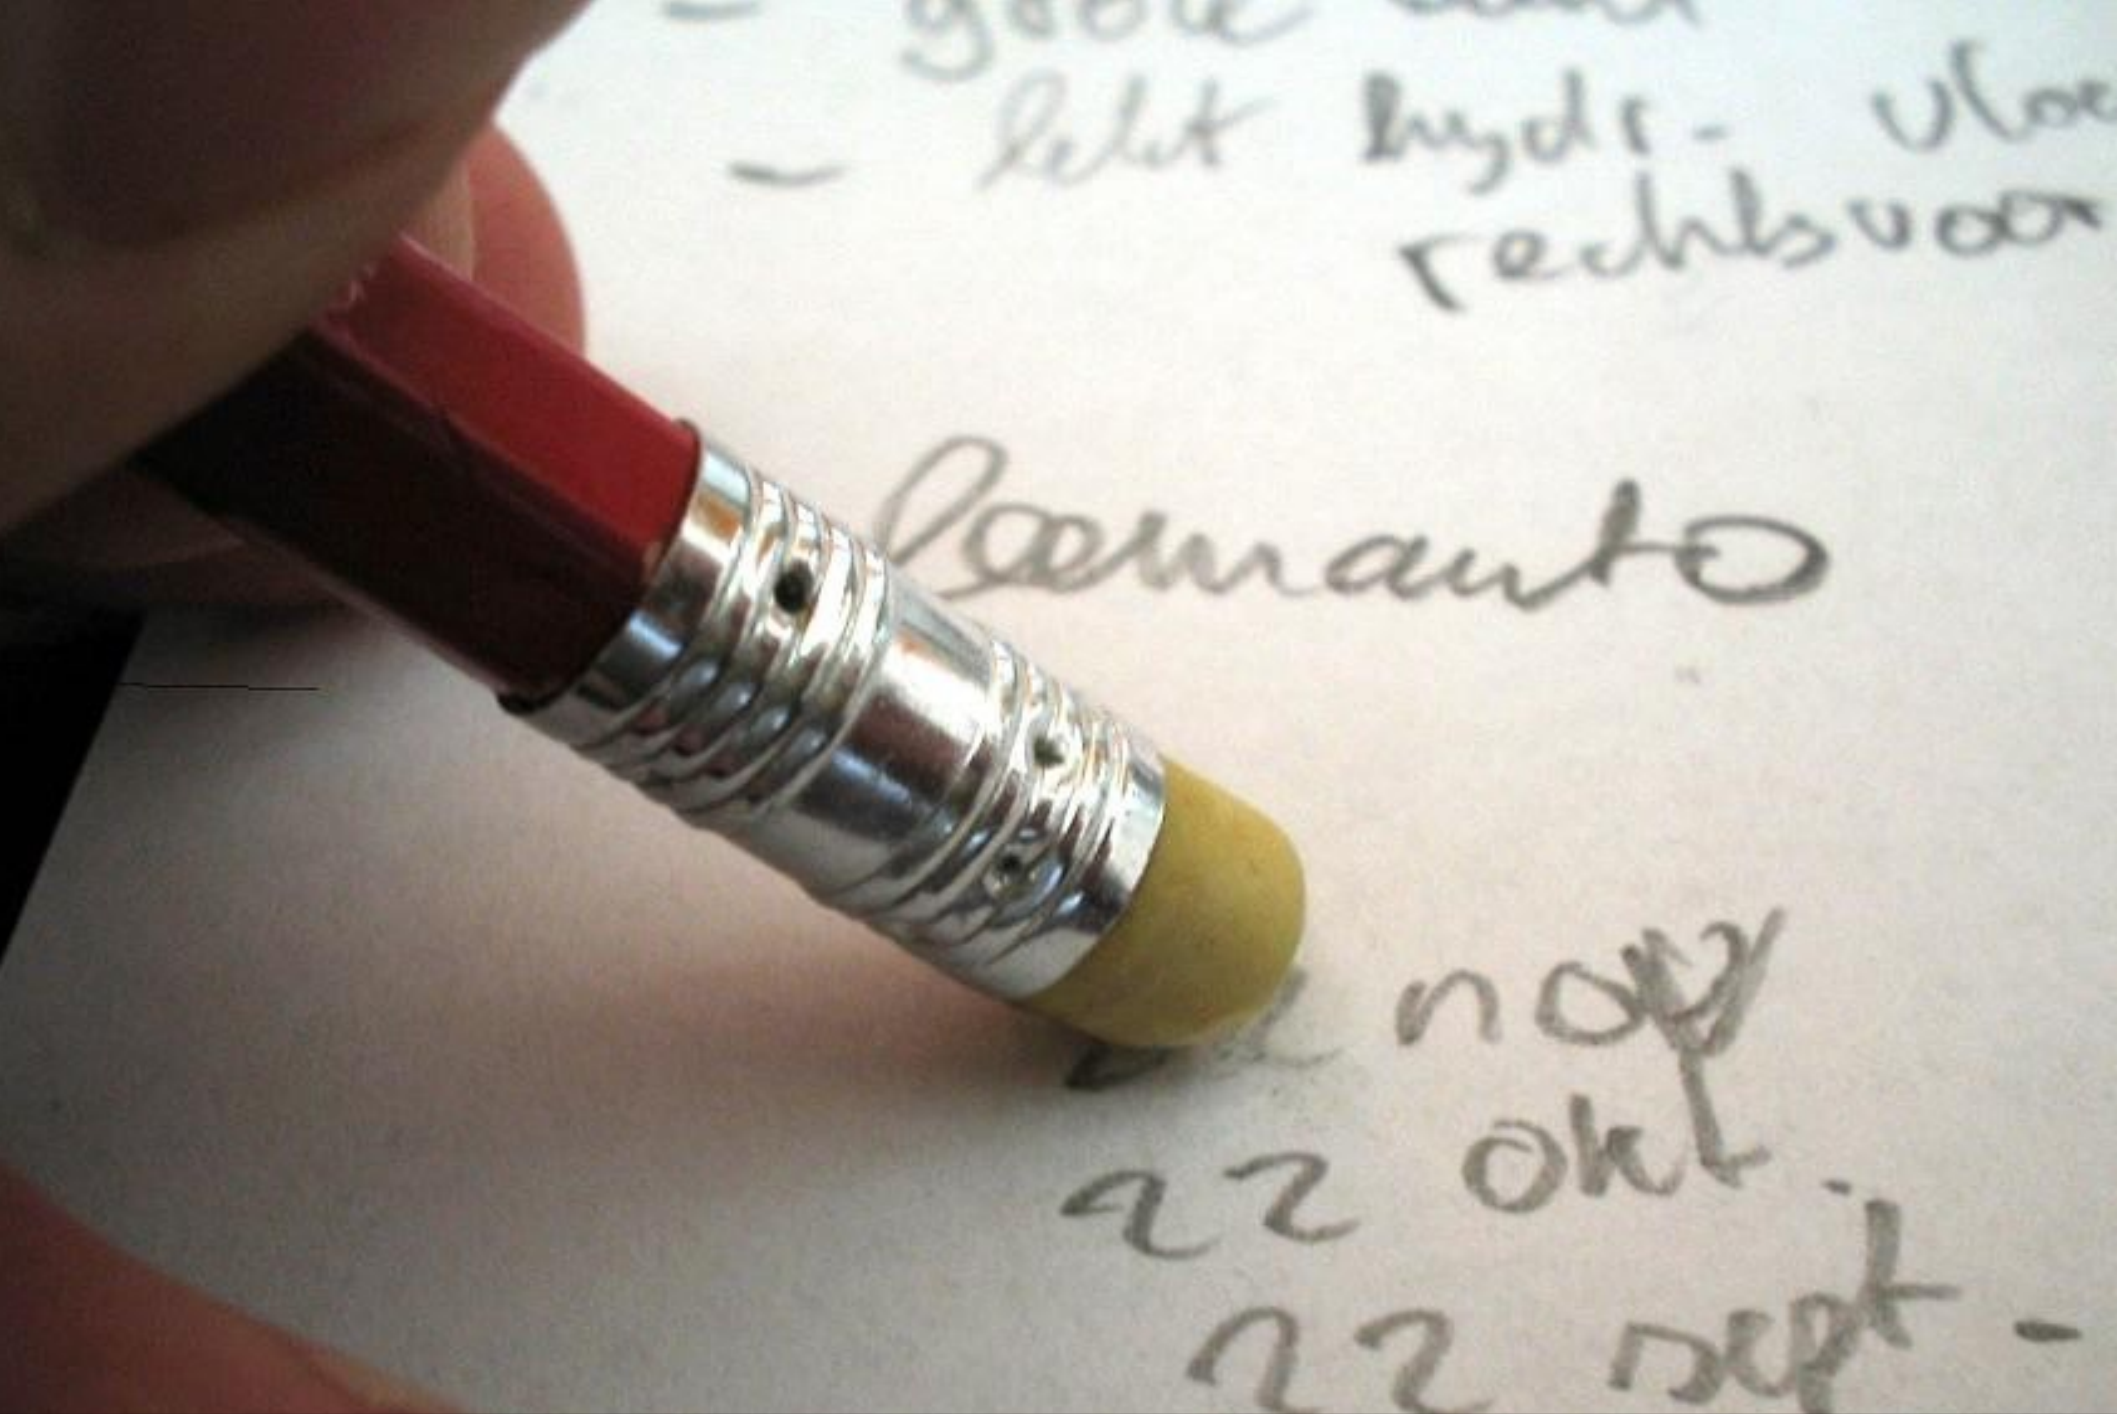 - grote
- lekt hydr. vloe
rechtsvoor
leenauto
nov
22 okt.
22 sept -